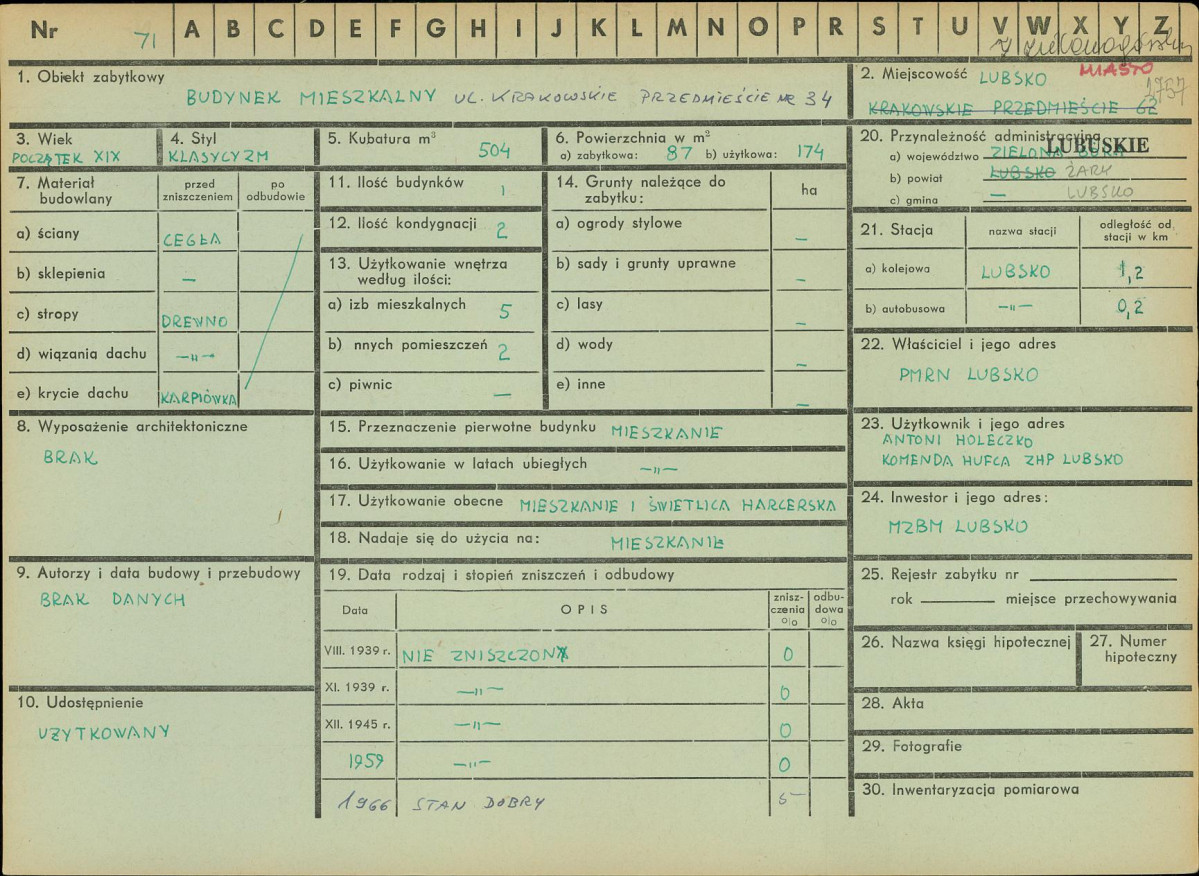 Nr 71 A B C D E F G H I J K L M N O P R S T U V W X Y Z
1. Obiekt zabytkowy
BUDYNEK MIESZKALNY UL. KRAKOWSKIE PRZEDMIEŚCIE NR 34
2. Miejscowość LUBSKO MIASTO
1757
KRAKOWSKIE PRZEDMIEŚCIE 62
3. Wiek
POCZĄTEK XIX
4. Styl
KLASYCYZM
5. Kubatura m³ 504
6. Powierzchnia w m²
a) zabytkowa: 87 b) użytkowa: 174
20. Przynależność administracyjna
a) województwo ZIELONA GÓRA LUBUSKIE
b) powiat LUBSKO ŻARY
c) gmina — LUBSKO
7. Materiał budowlany
przed zniszczeniem
po odbudowie
a) ściany CEGŁA
b) sklepienia —
c) stropy DREWNO
d) wiązania dachu —"—
e) krycie dachu KARPIÓWKA
11. Ilość budynków 1
12. Ilość kondygnacji 2
13. Użytkowanie wnętrza
według ilości:
a) izb mieszkalnych 5
b) nnych pomieszczeń 2
c) piwnic —
14. Grunty należące do
zabytku: ha
a) ogrody stylowe —
b) sady i grunty uprawne —
c) lasy —
d) wody —
e) inne —
21. Stacja
nazwa stacji
odległość od
stacji w km
a) kolejowa LUBSKO 1,2
b) autobusowa —"— 0,2
22. Właściciel i jego adres
PMRN LUBSKO
8. Wyposażenie architektoniczne
BRAK
15. Przeznaczenie pierwotne budynku MIESZKANIE
16. Użytkowanie w latach ubiegłych —"—
17. Użytkowanie obecne MIESZKANIE I ŚWIETLICA HARCERSKA
18. Nadaje się do użycia na: MIESZKANIE
23. Użytkownik i jego adres
ANTONI HOLECZKO
KOMENDA HUFCA ZHP LUBSKO
24. Inwestor i jego adres:
MZBM LUBSKO
9. Autorzy i data budowy i przebudowy
BRAK DANYCH
10. Udostępnienie
UŻYTKOWANY
19. Data rodzaj i stopień zniszczeń i odbudowy
Data OPIS znisz-
czenia
o|o odbu-
dowa
o|o
VIII. 1939 r. NIE ZNISZCZONY 0
XI. 1939 r. —"— 0
XII. 1945 r. —"— 0
1959 —"— 0
1966 STAN DOBRY 5
25. Rejestr zabytku nr
rok miejsce przechowywania
26. Nazwa księgi hipotecznej
27. Numer
hipoteczny
28. Akta
29. Fotografie
30. Inwentaryzacja pomiarowa